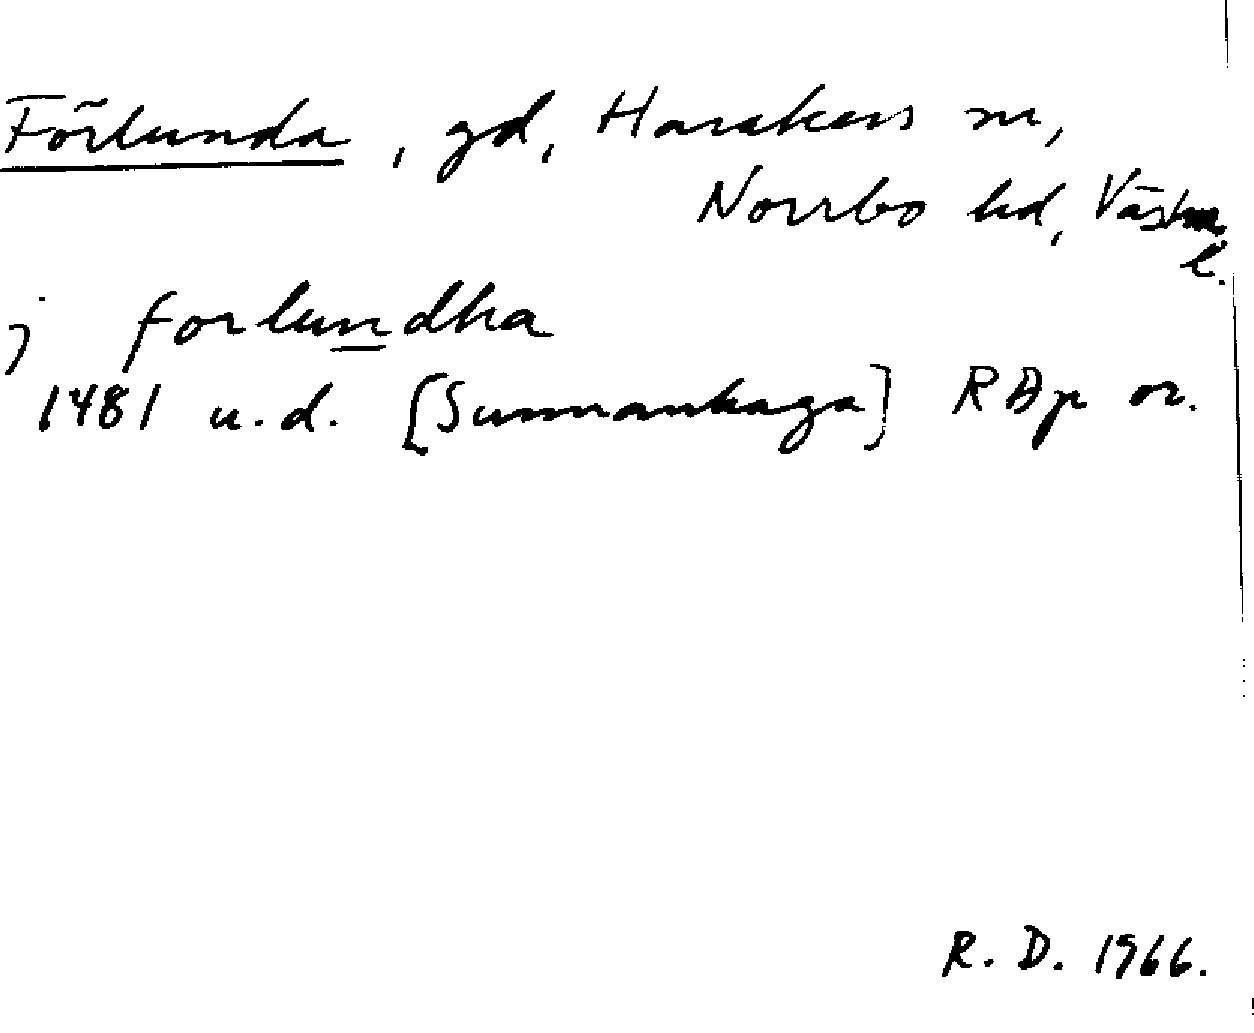 Förlunda, gd, Harakers sn,
Norrbo hd, Västm.
l.
j forlundha
1481 u.d. [Sunnanhaga] RAp or.
R. D. 1966.